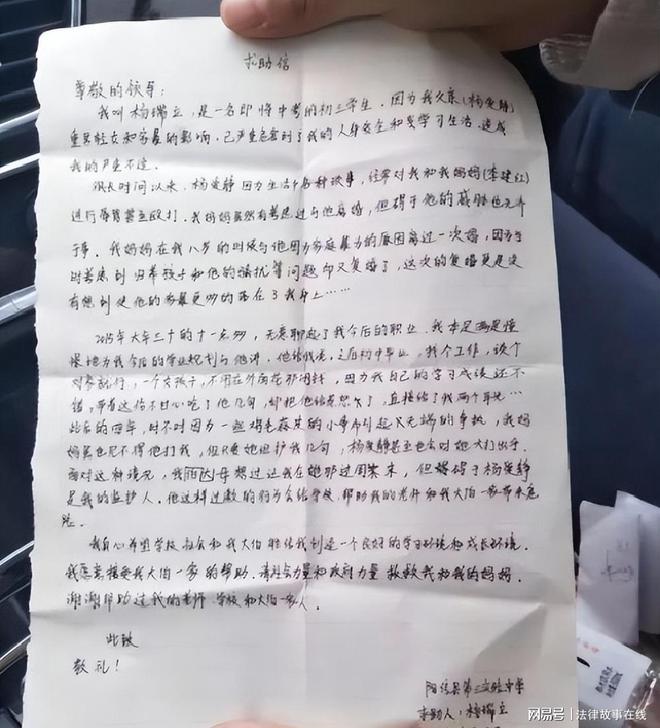 求助信
尊敬的领导：
我叫杨瑞立，是一名即将中考的初三学生。因为我父亲(杨爱静)
重男轻女和家暴的影响，已严重危害到了我的人身安全和学习生活，造成
我的严重不适。
很长时间以来，杨爱静因为生活中各种琐事，经常对我和我妈妈(李建红)
进行辱骂甚至殴打。我妈妈虽然有考虑过与他离婚，但碍于他的威胁也无济
于事。我妈妈在我八岁的时候与他因为家庭暴力的原因离过一次婚，因为当
时考虑到归养孩子和他的骚扰等问题却又复婚了，这次的复婚更是没
有想到使他的家暴更多的落在了我身上……
2015年大年三十的十一点多，无意聊起了我今后的职业。我本是满是憧
憬地为我今后的学业规划与他讲，他给我说，之后初中毕业，找个工作，谈个
对象就行，一个女孩子，不用在外面花那闲钱，因为我自己的学习成绩还不
错，带着这份不甘心吃了他几句，却把他给惹怒了，直接给了我两个耳光…
此后的四年，时不时因为一些鸡毛蒜皮的小事而引起又无端的争执，我妈
妈虽也见不得他打我，但只要她但护我几句，杨爱静甚至也会对她大打出手。
面对这种情况，我伯母想过让我在她那边周末，但碍于杨爱静
是我的监护人，他这样过激的行为会给学校，帮助我的老师和我大伯一家带来危
险。
我真心希望学校社会和我大伯能给我创造一个良好的学习环境和成长环境。
我愿意接受我大伯一家的帮助，请社会力量和政府力量拯救我和我的妈妈。
谢谢帮助过我的老师 学校和大伯一家人。
此致
敬礼！
阳信县第三实验中学
求助人：杨瑞立
网易号 | 法律故事在线